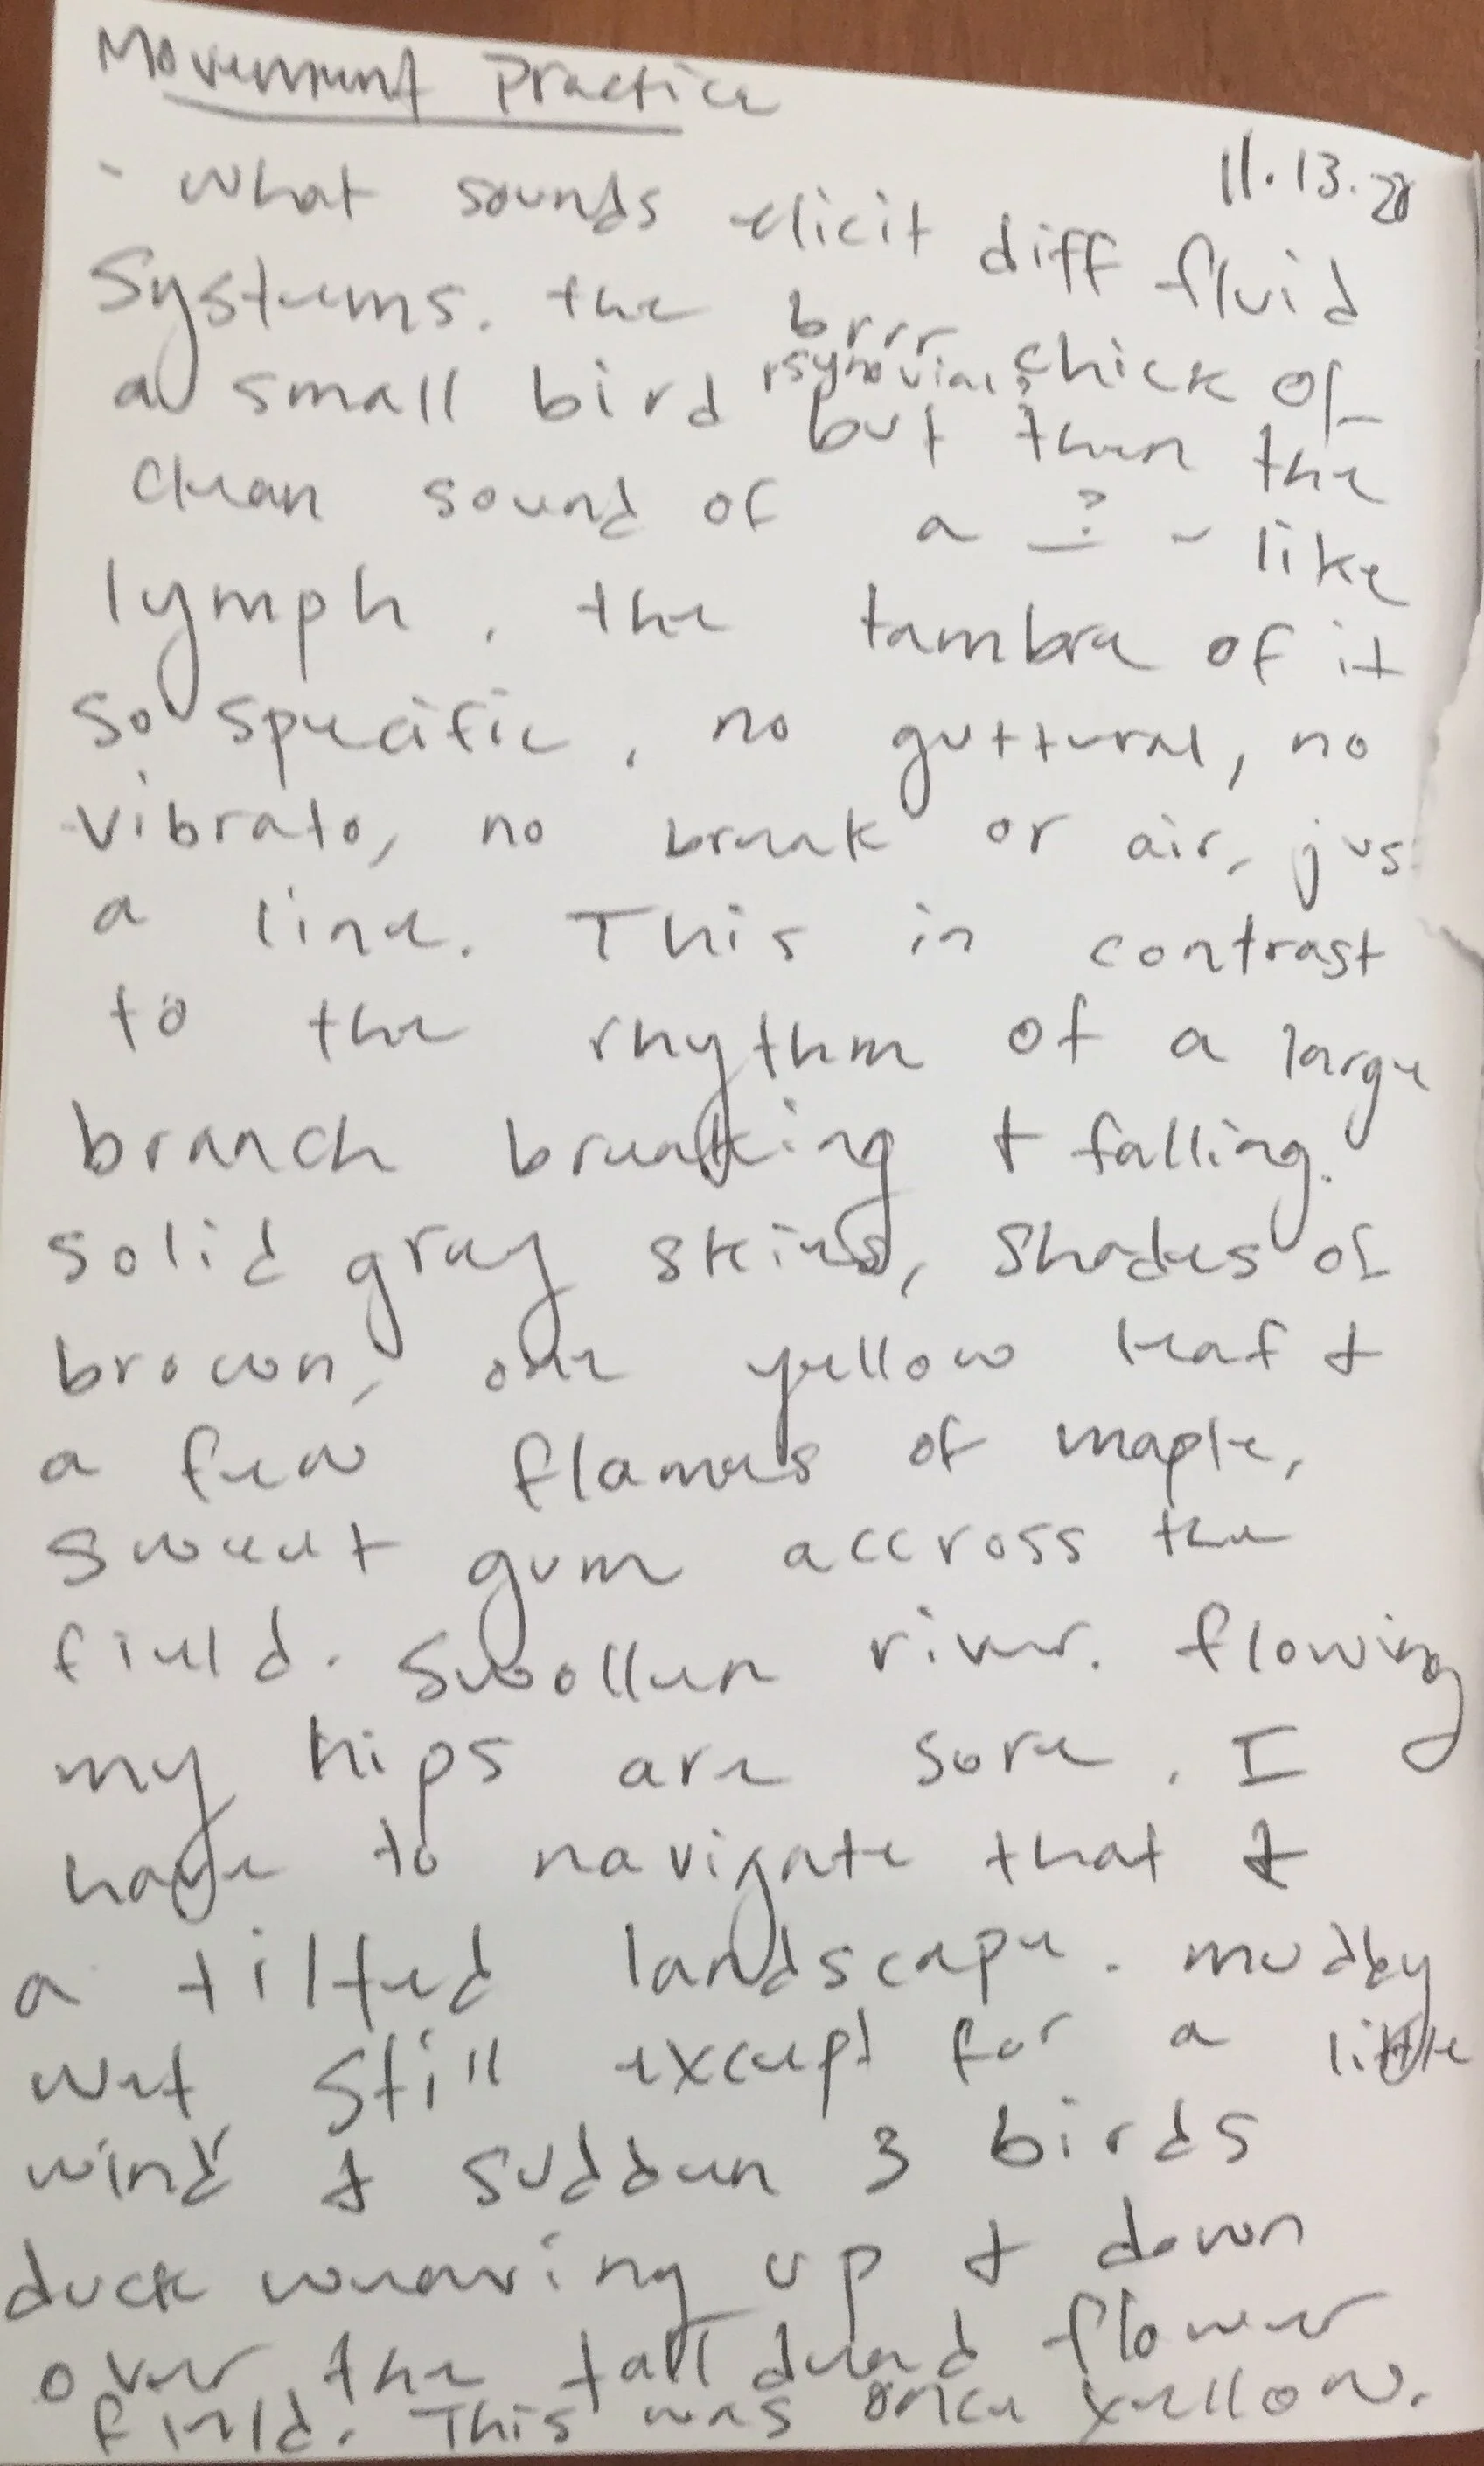 Movement Practice
11.13.20
- What sounds elicit diff fluid
Systems. the brrr chick of
a small bird (synovial? but then the
clean sound of a ? - like
lymph. the tambre of it
so specific, no guttural, no
vibrato, no break or air, jus
a line. This in contrast
to the rhythm of a large
branch breaking + falling.
solid gray skies, shades of
brown, one yellow leaf +
a few flames of maple,
sweet gum accross the
field. Swollen river. flowing
my hips are sore. I
have to navigate that +
a tilted landscape. muddy
wet still except for a little
wind + sudden 3 birds
duck weaving up + down
over the tall dead flower
field. This was once yellow.